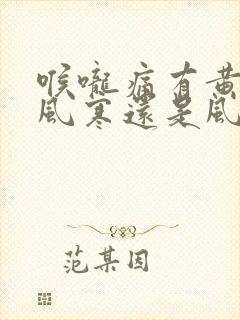 喉嚨痛有黃
風寒還是風
范某因